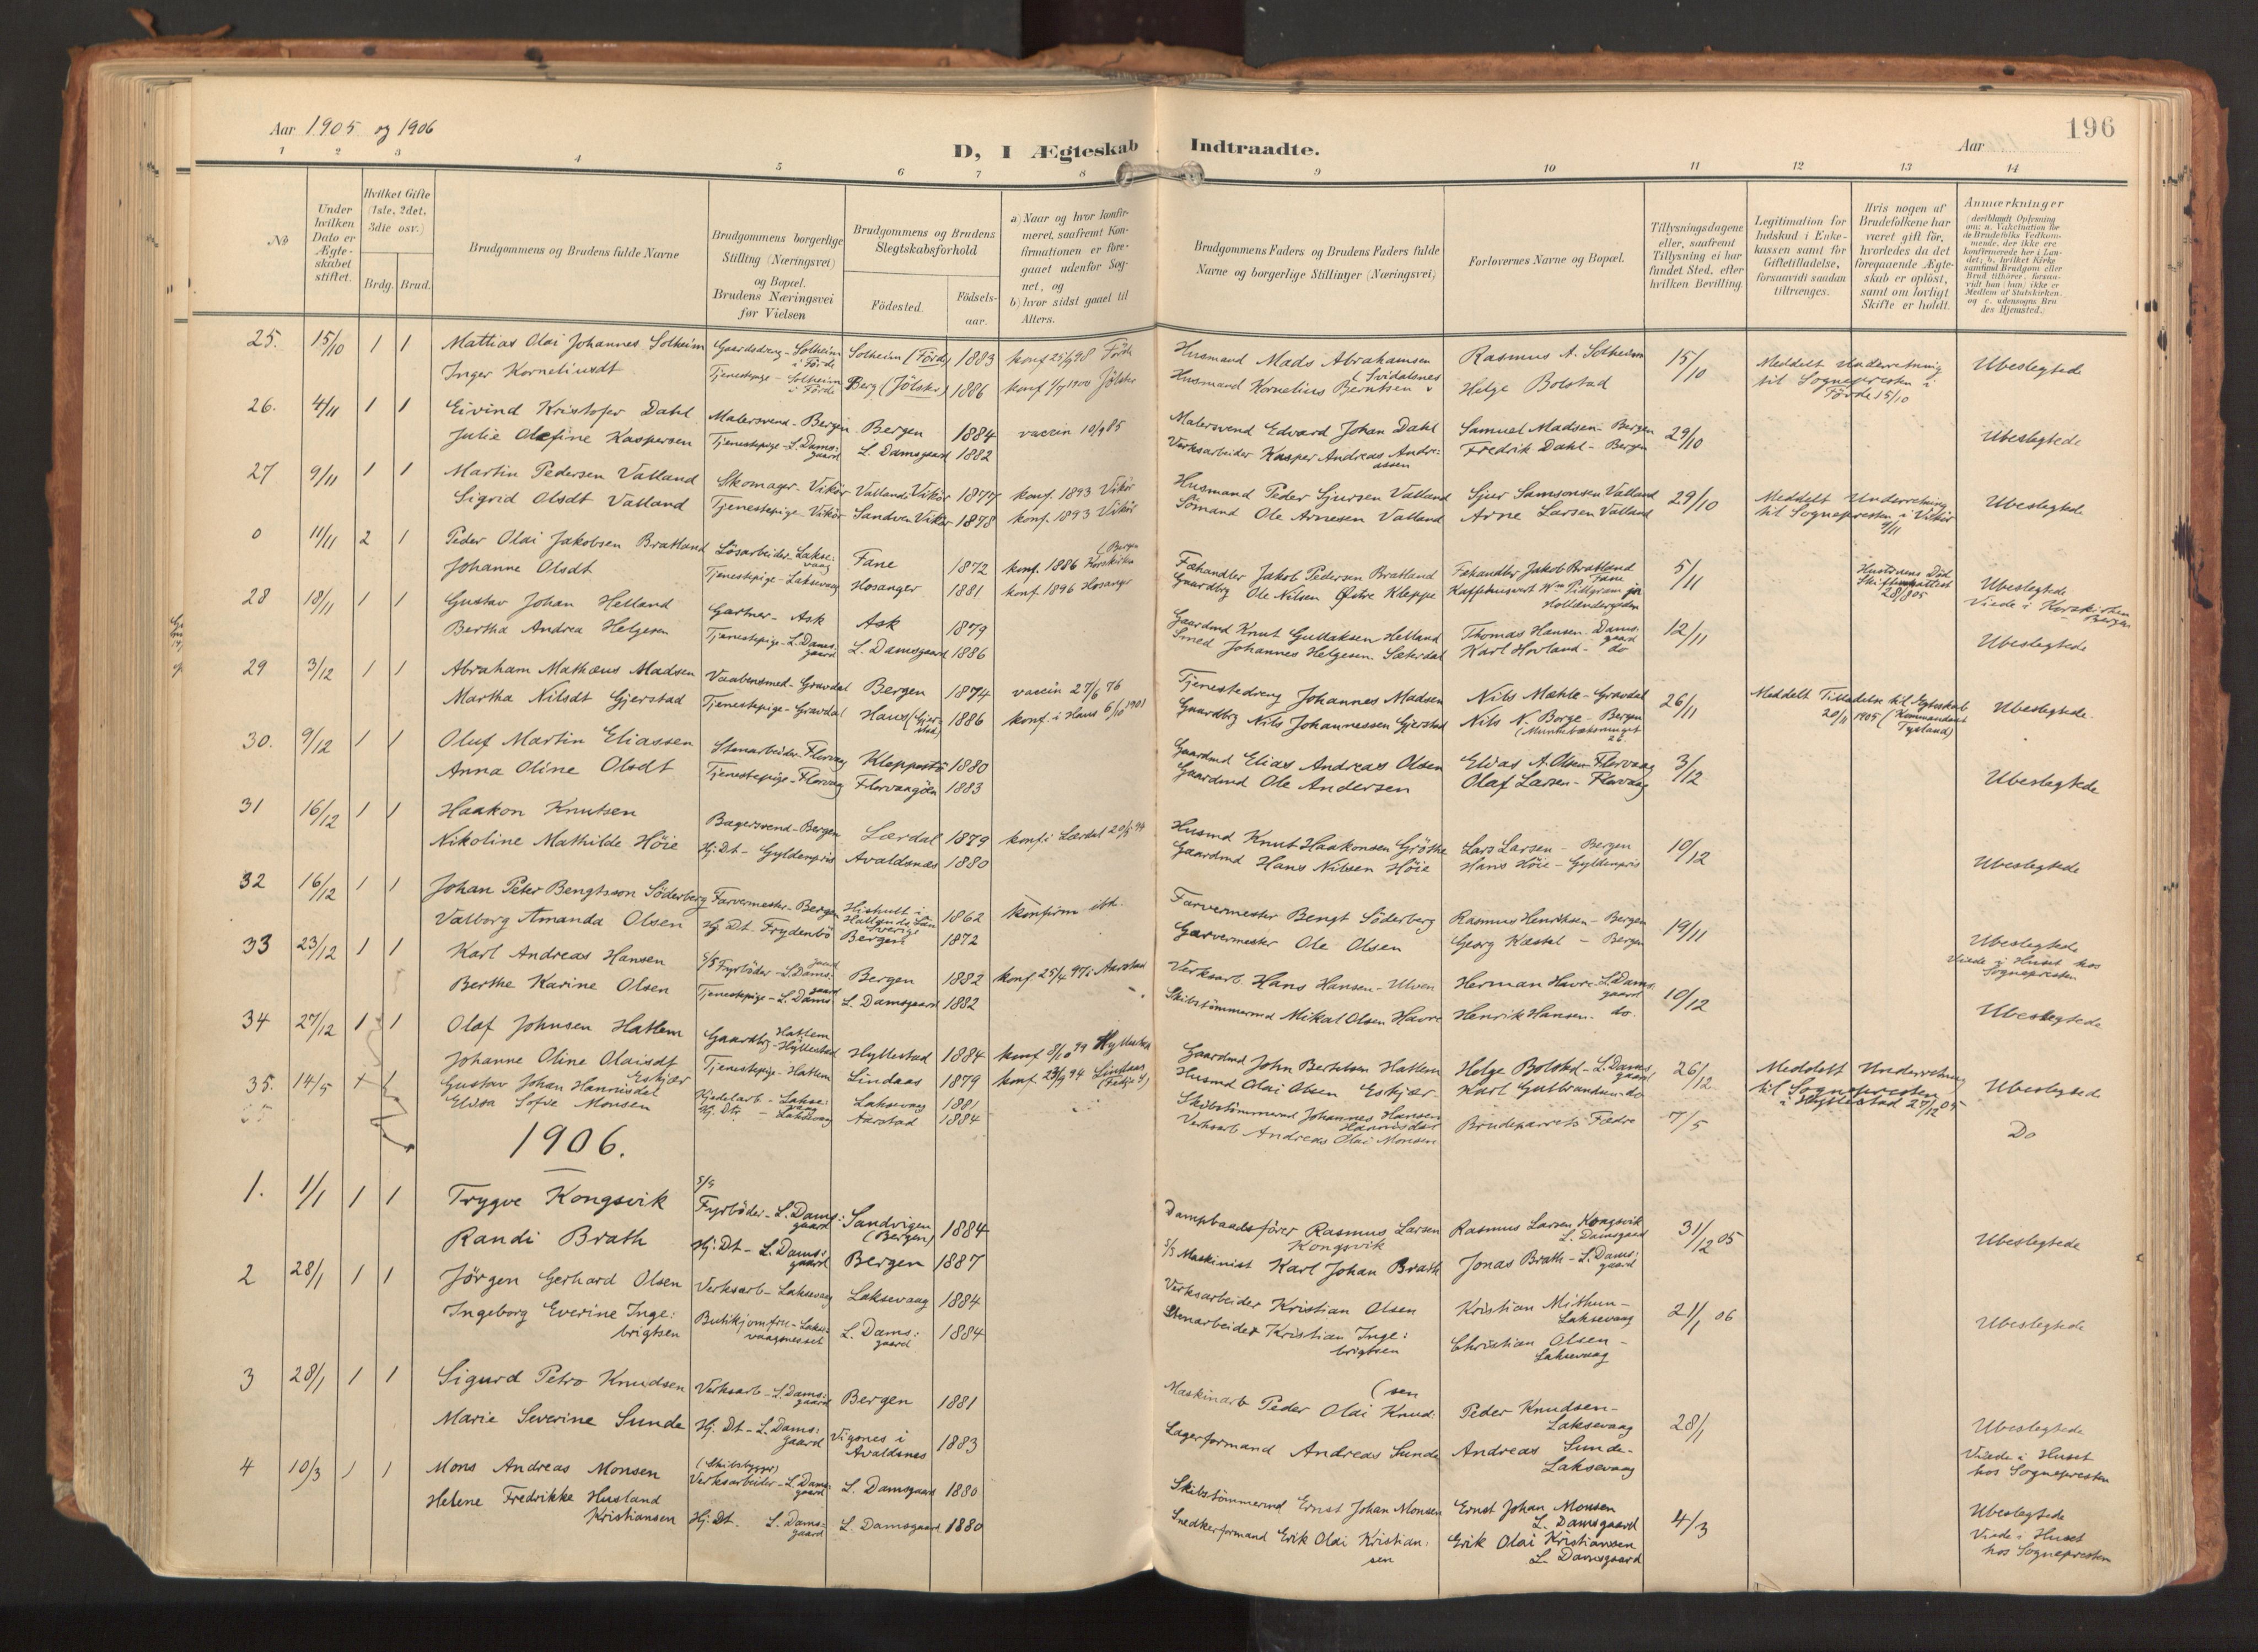 Aar 1905 og 1906
D, I Ægteskab Indtraadte.
Aar
196
1 2 3 4 5 6 7 8 9 10 11 12 13 14
№
Under hvilken Dato er Ægteskabet stiftet.
Hvilket Gifte (1ste, 2det, 3die osv.)
Brdg. Brud.
Brudgommens og Brudens fulde Navne
Brudgommens borgerlige Stilling (Næringsvei) og Bopæl. Brudens Næringsvei før Vielsen
Brudgommens og Brudens Slegtskabsforhold
Födested.
Födselsaar.
a) Naar og hvor konfirmeret, saafremt Konfirmationen er foregaaet udenfor Sognet, og
b) hvor sidst gaaet til Alters.
Brudgommens Faders og Brudens Faders fulde Navne og borgerlige Stillinger (Næringsvei)
Forlovernes Navne og Bopæl.
Tillysningsdagene eller, saafremt Tillysning ei har fundet Sted, efter hvilken Bevilling.
Legitimation for Indskud i Enkekassen samt for Giftetilladelse, forsaavidt saadan tiltrænges.
Hvis nogen af Brudefolkene har været gift før, hvorledes da det foregaaende Ægteskab er oplöst, samt om lovligt Skifte er holdt.
Anmærkninger
25. 15/10 1 1 Mattias Olai Johannes. Solheim Gaardsdreng - Solheim i Förde Solheim (Förde) 1883 konf 25/9 98 Förde Husmand Mads Abrahamsen Rasmus A. Solheim 15/10 Meddelt Underretning til Sognepresten i Förde 15/10 Ubeslegtede
Inger Korneliusdt Tjenestepige - Solheim i Förde Berg (Jölster) 1886 Jölster Husmand Kornelius Berntsen Helge Bolstad
26. 4/11 1 1 Eivind Kristofer Dahl Malersvend - Bergen Bergen 1884 vaccin 10/9 85 Malersvend Edvard Johan Dahl Samuel Madsen - Bergen 29/10 Ubeslegtede
Julie Olefine Kaspersen Tjenestepige - L. Damsgaard L. Damsgaard 1882 Verksarbeider Kasper Andreas Andreassen Fredrik Dahl - Bergen
27 9/11 1 1 Martin Pedersen Valland Skomager - Vikör Valland Vikör 1877 konf. 1893 Vikör Husmand Peder Sjursen Valland Sjur Samsonsen Valland 29/10 Meddelt Underretning til Sognepresten i Vikör 9/11 Ubeslegtede
Sigrid Olsdt Valland Tjenestepige - Vikör Sandven Vikör 1878 konf. 1893 Vikör Sömand Ole Arnesen Valland Arne Larsen Valland
0 11/11 2 1 Peder Olai Jakobsen Bratland Lösarbeider - Laksevaag Fane 1872 konf. 1886 Korskirken (Bergen Fæhandler Jakob Pedersen Bratland Fæhandler Jakob Bratland Fane 5/11 Hustruens Död Skifteattest 28/8 05 Ubeslegtede Viede i Korskirken Bergen
Johanne Olsdt Tjenestepige - Laksevaag Hosanger 1881 konf. 1896 Hosanger Gaardbrg Ole Nilsen Østre Kleppe Kaffehusvert Wm Pillgram jr
28 18/11 1 1 Gustav Johan Helland Gartner - Ask Ask 1879 Gaardmd Knut Gullaksen Helland Thomas Hansen - Damsgaard 12/11 Ubeslegtede
Bertha Andrea Helgesen Tjenestepige - L. Damsgaard L. Damsgaard 1886 Smed Johannes Helgesen Sæterdal Karl Hovland - do
29 3/12 1 1 Abraham Mathæus Madsen Vaabensmed - Gravdal Bergen 1874 vaccin 27/6 76 Tjenestedreng Johannes Madsen Nils Mæhle - Gravdal 26/11 Meddelt Tilladelse til Ægteskab 20/11 1905 (Kommandant Tysland) Ubeslegtede.
Martha Nilsdt Gjerstad Tjenestepige - Gravdal Haus (Gjerstad) 1886 konf. i Haus 6/10 1901 Gaardbrg Nils Johannessen Gjerstad Nils N. Borge - Bergen
30. 9/12 1 1 Oluf Martin Eliassen Stenarbeider - Florvaag Kleppestö 1880 Gaardmd Elias Andreas Olsen Elias A. Olsen - Florvaag 3/12 Ubeslegtede
Anna Oline Olsdt Tjenestepige - Florvaag Florvaagöen 1883 Gaardmd Ole Andersen Olaf Larsen - Florvaag
31 16/12 1 1 Haakon Knutsen Bagersvend - Bergen Lærdal 1879 konf. i Lærdal 20/5 94 Husmd Knut Haakonsen Gröthe Lars Larsen - Bergen 10/12 Ubeslegtede
Nikoline Mathilde Höie Hj: Dt - Gyldenpris Avaldsnes 1880 Gaardmd Hans Nilsen Höie Hans Höie - Gyldenpris
32 16/12 1 1 Johan Peter Bengtsson Söderberg Farvermester - Bergen Hishult i Hallands Län Sverige 1862 konfirm. Farvermester Bengt Söderberg Rasmus Henriksen - Bergen 19/11 Ubeslegtede Viede i Huset hos Sognepresten
Valborg Amanda Olsen Hj. Dt. Frydenbö Bergen 1872 Garvermester Ole Olsen Georg Kæstel - Bergen
33 23/12 1 1 Karl Andreas Hansen S/S Fyrböder - L. Damsgaard Bergen 1882 konf. 25/4 97 i Aarstad Verksarb. Hans Hansen - Ulven Herman Havre - L. Damsgaard 10/12 Ubeslegtede
Berthe Karine Olsen Tjenestepige - L. Damsgaard L. Damsgaard 1882 Skibstömmermd Mikal Olsen Havre Henrik Hansen - do.
34 27/12 1 1 Olaf Johnsen Hatlem Gaardbrg - Hatlem Hyllestad Hyllestad 1884 konf 8/10 99 Hyllestad Gaardmd John Bertelsen Hatlem Helge Bolstad - L. Damsgaard 26/12 Meddelt Underretning til Sognepresten i Hyllestad 27/12 05 Ubeslegtede
Johanne Oline Olaisdt Eskjær Tjenestepige - Hatlem Lindaas 1879 konf. 23/9 94 Lindaas Husmd Olai Olsen Eskjær Karl Gulbrandsen - do
35. 14/5 Gustav Johan Hannisdal Kjedelarb - Laksevaag Laksevaag 1881 Skibstömmermd Johannes Hansen Hannisdal Brudeparrets Fædre 7/5 Do
Elisa Sofie Monsen Hj. Dtr - Laksevaag Aarstad 1884 Verksarb Andreas Olai Monsen
1906.
1. 1/1 1 1 Trygve Kongsvik S/S Fyrböder - L. Damsgaard Sandvigen (Bergen) 1884 Dampbaadsförer Rasmus Larsen Kongsvik Rasmus Larsen Kongsvik L. Damsgaard 31/12 05 Ubeslegtede
Randi Brath Hj: Dt - L. Damsgaard Bergen 1887 S/S Maskinist Karl Johan Brath Jonas Brath - L. Damsgaard
2 28/1 1 1 Jörgen Gerhard Olsen Verksarb - Laksevaag Laksevaag 1884 Verksarbeider Kristian Olsen Kristian Mithun - Laksevaag 21/1 06 Ubeslegtede
Ingeborg Everine Ingebrigtsen Butikjomfru - Laksevaagnesset L. Damsgaard 1884 Stenarbeider Kristian Ingebrigtsen Christian Olsen - Laksevaag
3 28/1 1 1 Sigurd Petro Knudsen Verksarb - L. Damsgaard Bergen 1881 Maskinarb Peder Olai Knudsen Peder Knudsen - Laksevaag 28/1 Ubeslegtede Viede i Huset hos Sognepresten
Marie Severine Sunde Hj. Dt - L. Damsgaard Vigsnes i Avaldsnes 1883 Lagerformand Andreas Sunde Andreas Sunde - Laksevaag
4 10/3 1 1 Mons Andreas Monsen (Skibsbygger) Verksarbeider - L. Damsgaard L. Damsgaard 1880 Skibstömmermd Ernst Johan Monsen Ernst Johan Monsen L. Damsgaard 4/3 Ubeslegtede Viede i Huset hos Sognepresten
Helene Fredrikke Husland Kristiansen Hj: Dt. L. Damsgaard L. Damsgaard 1880 Snedkerformand Erik Olai Kristiansen Erik Olai Kristiansen L. Damsgaard